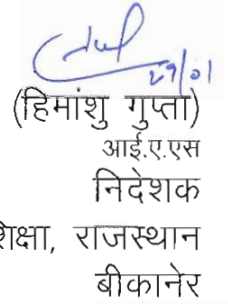 29/01
(हिमांशु गुप्ता)
आई.ए.एस
निदेशक
शिक्षा, राजस्थान
बीकानेर